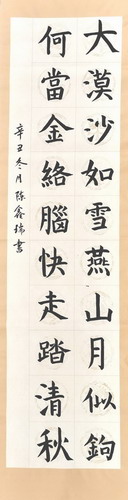 大漠沙如雪燕山月似鉤
何當金絡腦快走踏清秋
辛丑冬月陈鑫瑞書